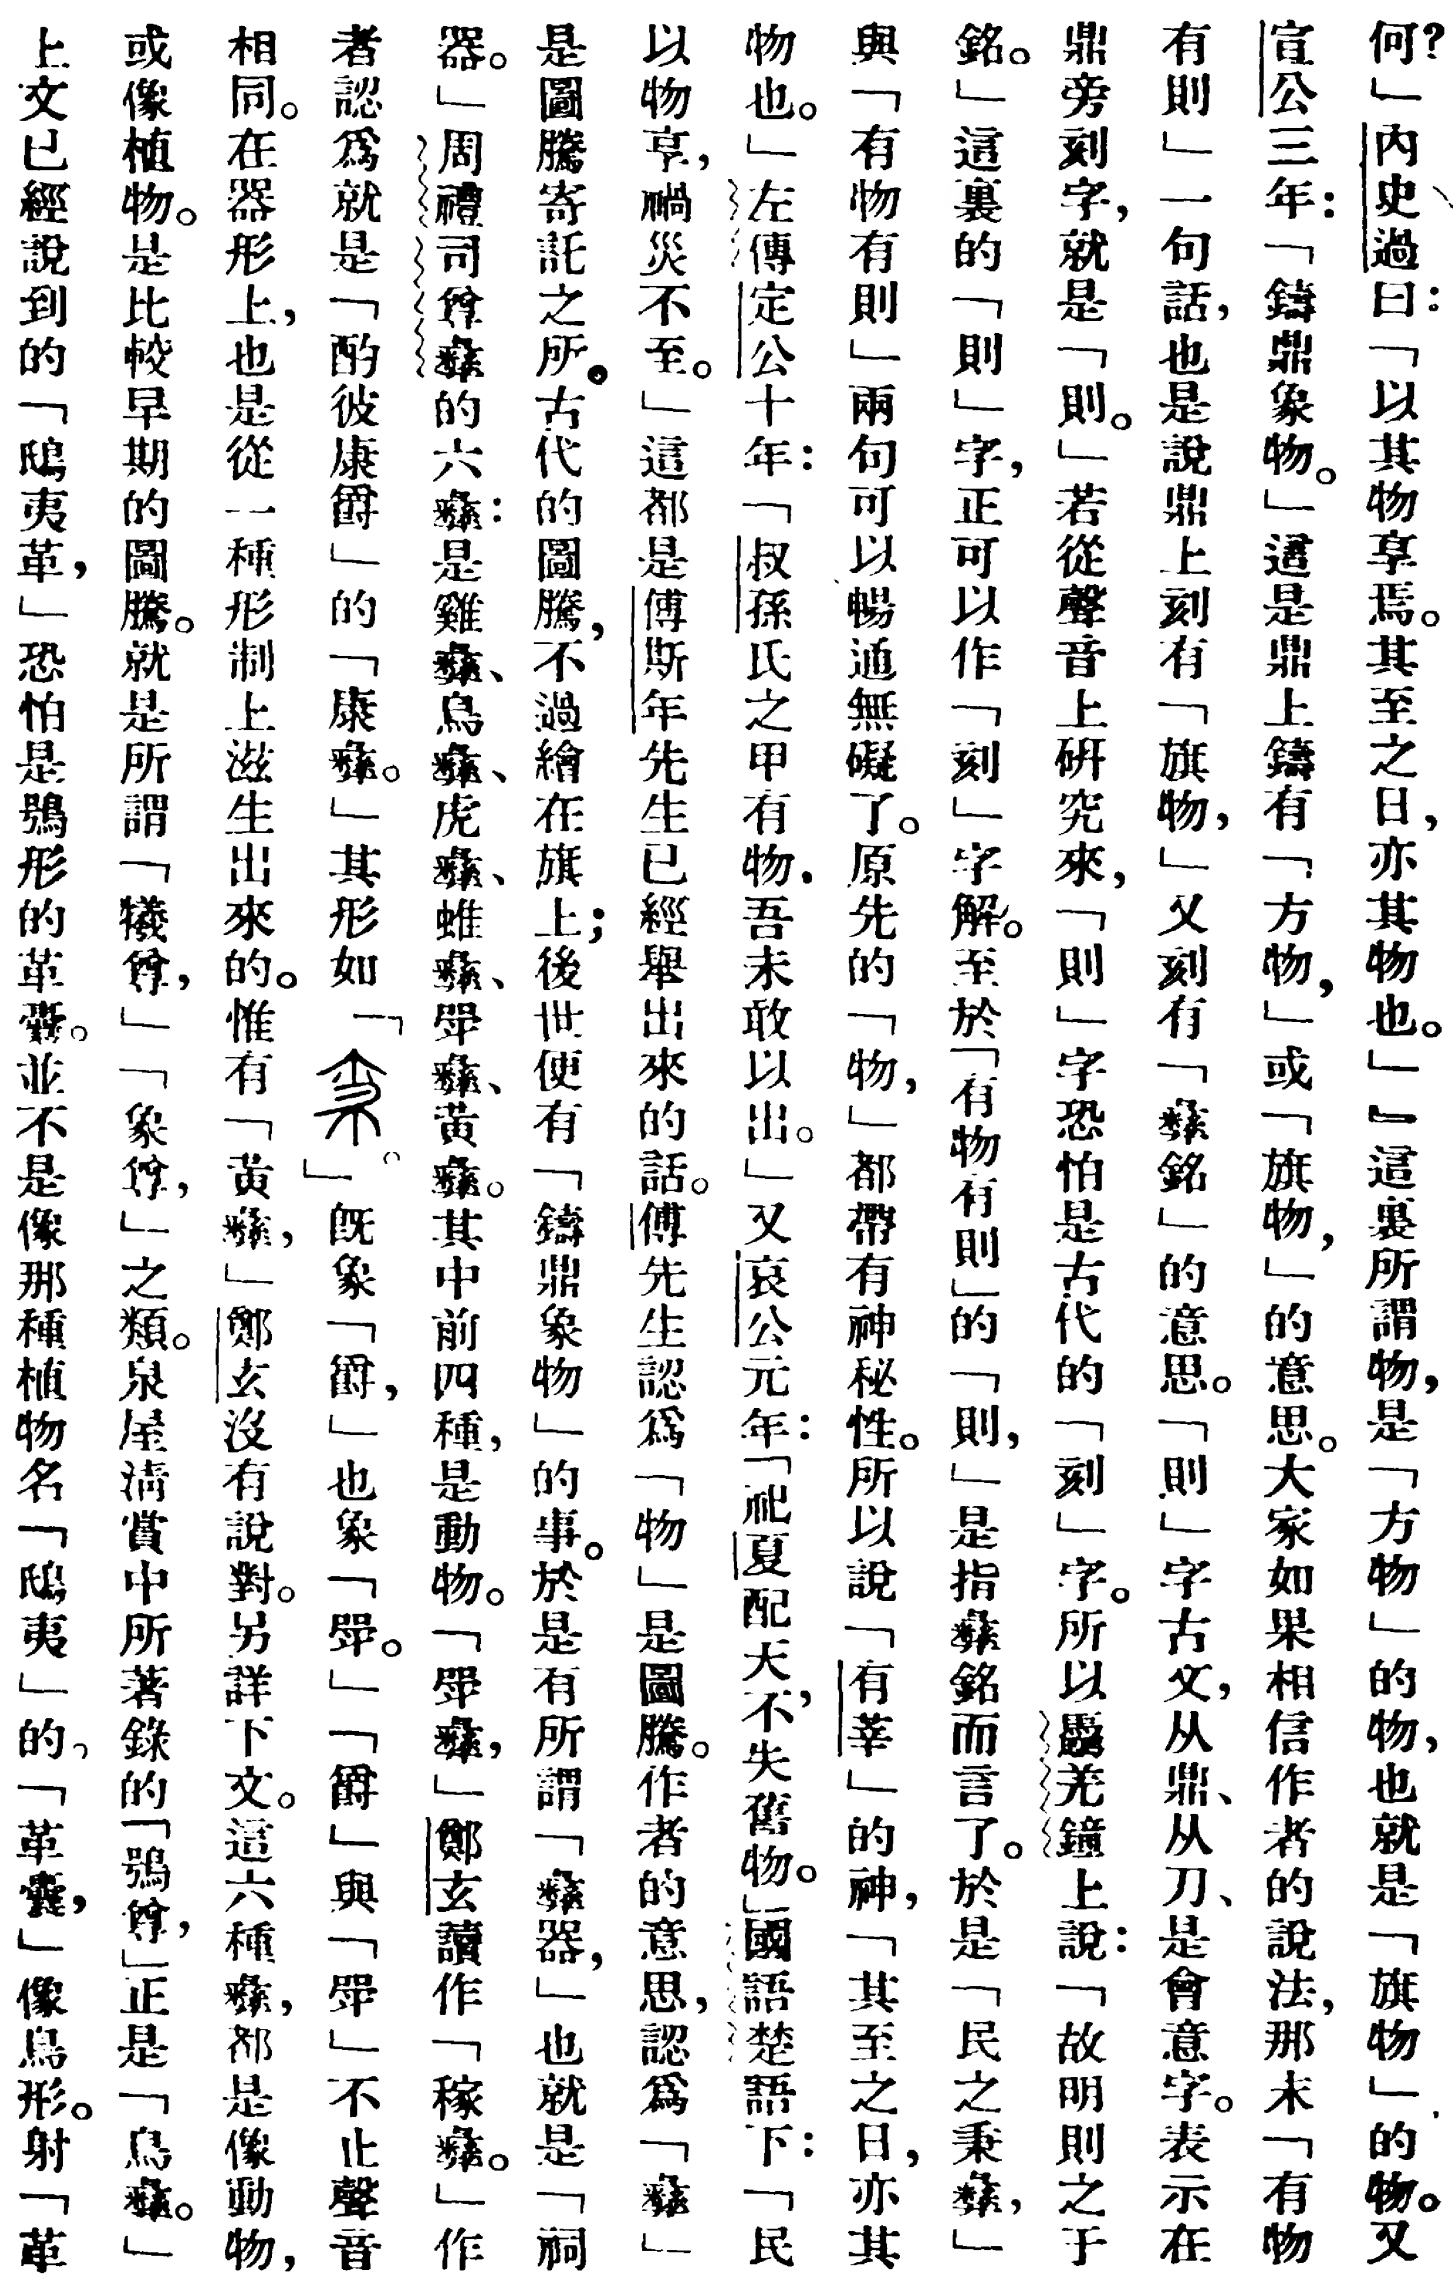 何？」內史過曰：「以其物享焉。其至之日，亦其物也。」』這裏所謂物，是「方物」的物，也就是「旗物」的物。又
宣公三年：「鑄鼎象物。」這是鼎上鑄有「方物，」或「旗物，」的意思。大家如果相信作者的說法，那末「有物
有則」一句話，也是說鼎上刻有「旗物，」又刻有「彝銘」的意思。「則」字古文，从鼎、从刀、是會意字。表示在
鼎旁刻字，就是「則。」若從聲音上研究來，「則」字恐怕是古代的「刻」字。所以羌鐘上說：「故明則之于
銘。」這裏的「則」字，正可以作「刻」字解。至於「有物有則」的「則，」是指彝銘而言了。於是「民之秉彝，」
與「有物有則」兩句可以暢通無礙了。原先的「物，」都帶有神秘性。所以說「有莘」的神，「其至之日，亦其
物也。」左傳定公十年：「叔孫氏之甲有物，吾未敢以出。」又哀公元年：「祀夏配天，不失舊物。」國語楚語下：「民
以物享，禍災不至。」這都是傅斯年先生已經舉出來的話。傅先生認爲「物」是圖騰。作者的意思，認爲「彝」
是圖騰寄託之所。古代的圖騰，不過繪在旗上；後世便有「鑄鼎象物」的事。於是有所謂「彝器，」也就是「祠
器。」周禮司尊彝的六彝：是雞彝、鳥彝、虎彝、蜼彝、斝彝、黃彝。其中前四種，是動物。「斝彝，」鄭玄讀作「稼彝。」作
者認爲就是「酌彼康爵」的「康彝。」其形如「。」既象「爵，」也象「斝。」「爵」與「斝」不止聲音
相同。在器形上，也是從一種形制上滋生出來的。惟有「黃彝，」鄭玄沒有說對。另詳下文。這六種彝，都是像動物，
或像植物。是比較早期的圖騰。就是所謂「犧尊，」「象尊，」之類。泉屋清賞中所著錄的「鴞尊，」正是「鳥彝。」
上文已經說到的「鴟夷革，」恐怕是鴞形的革囊。並不是像那種植物名「鴟夷」的。「革囊，」像鳥形。射「革